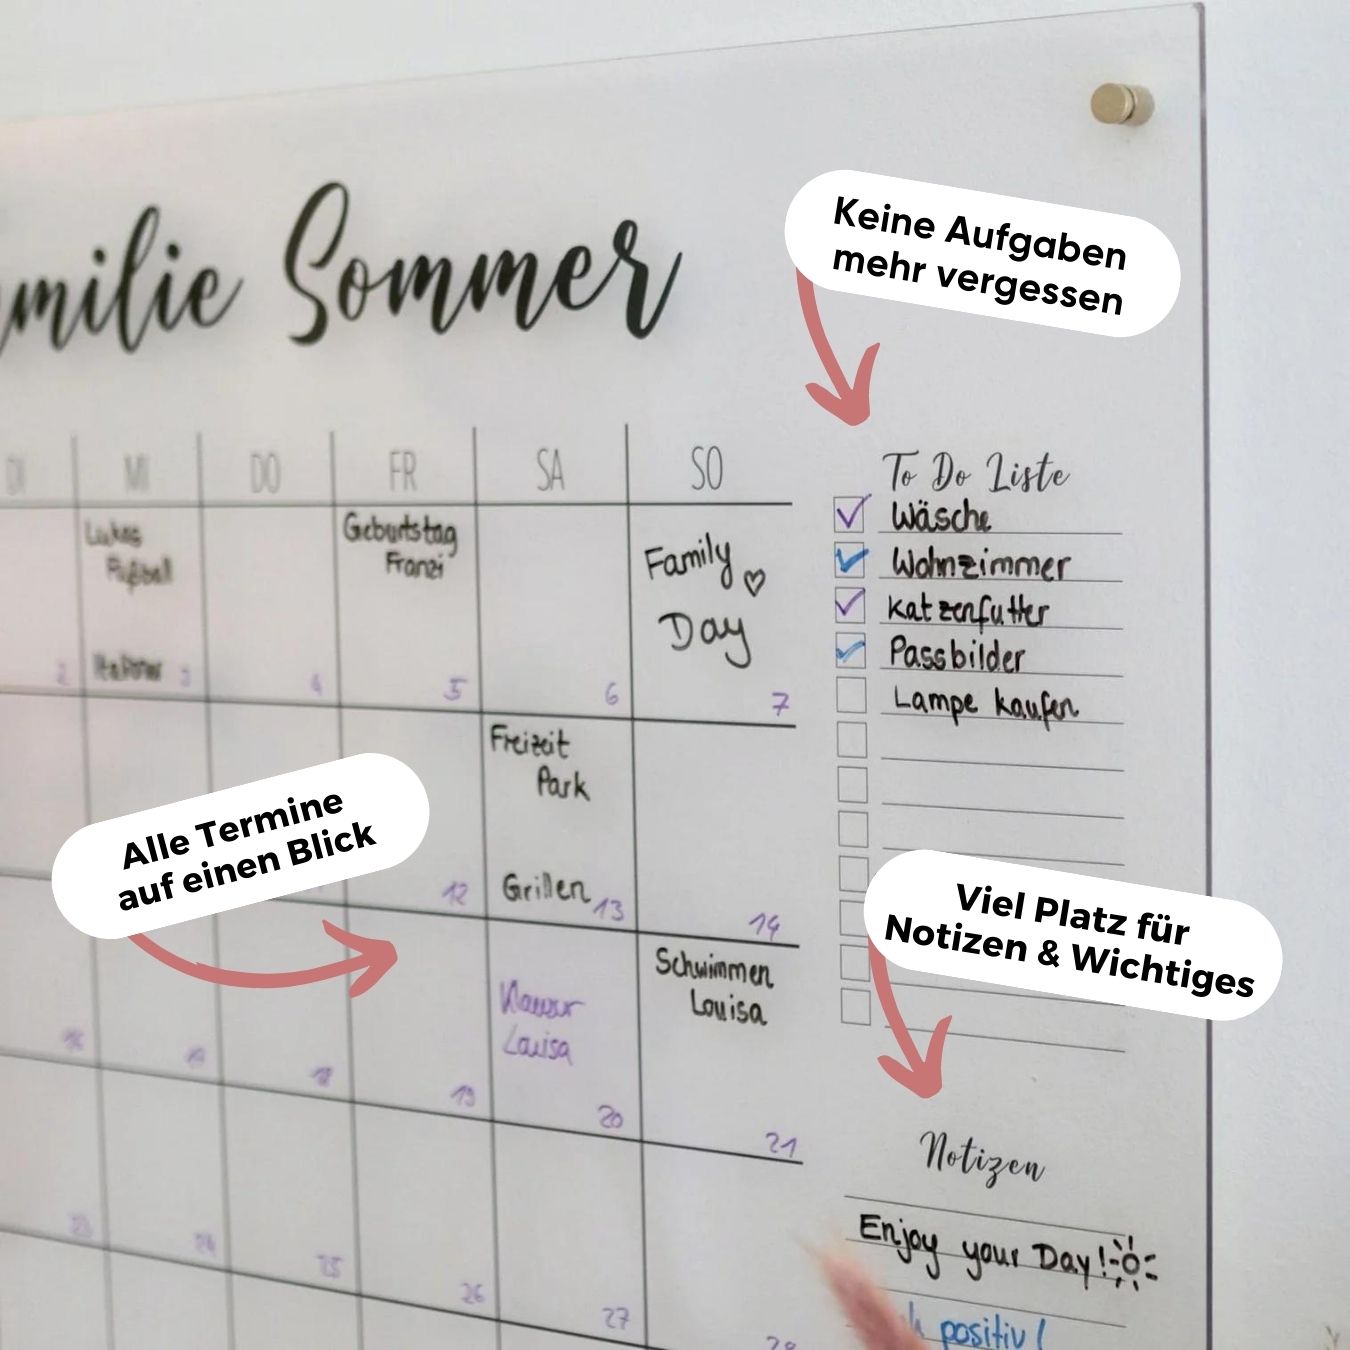 Keine Aufgaben
mehr vergessen
milie Sommer
DI MI DO FR SA SO
To Do Liste
Wäsche
Wohnzimmer
Katzenfutter
Passbilder
Lampe kaufen
Lukas
Fußball
Geburtstag
Franzi
Family
Day
2 3 4 5 6 7
Freizeit
Park
Grillen
12 13 14
Alle Termine
auf einen Blick
Viel Platz für
Notizen & Wichtiges
Klausur
Louisa
Schwimmen
Louisa
18 19 20 21
Notizen
Enjoy your Day!
positiv!
23 24 25 26 27 28